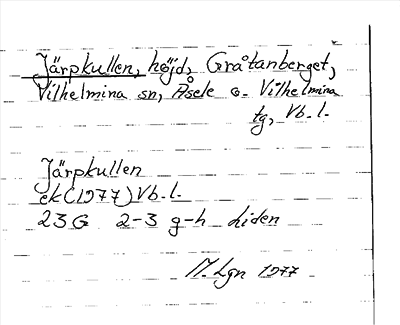 Järpkullen, höjd, Gråtanberget,
Vilhelmina sn, Åsele o. Vilhelmina
tg, Vb. l.
Järpkullen
ek (1977) Vb. l.
23 G 2-3 g-h Liden
M. Lgn 1977